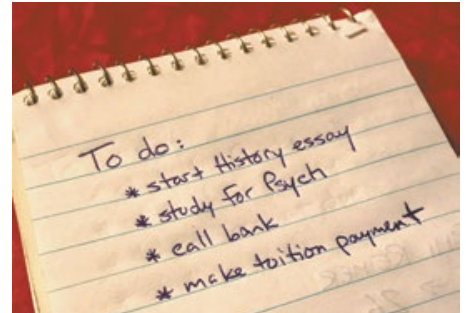 To do:
* start History essay
* study for Psych
* call bank
* make toition payment